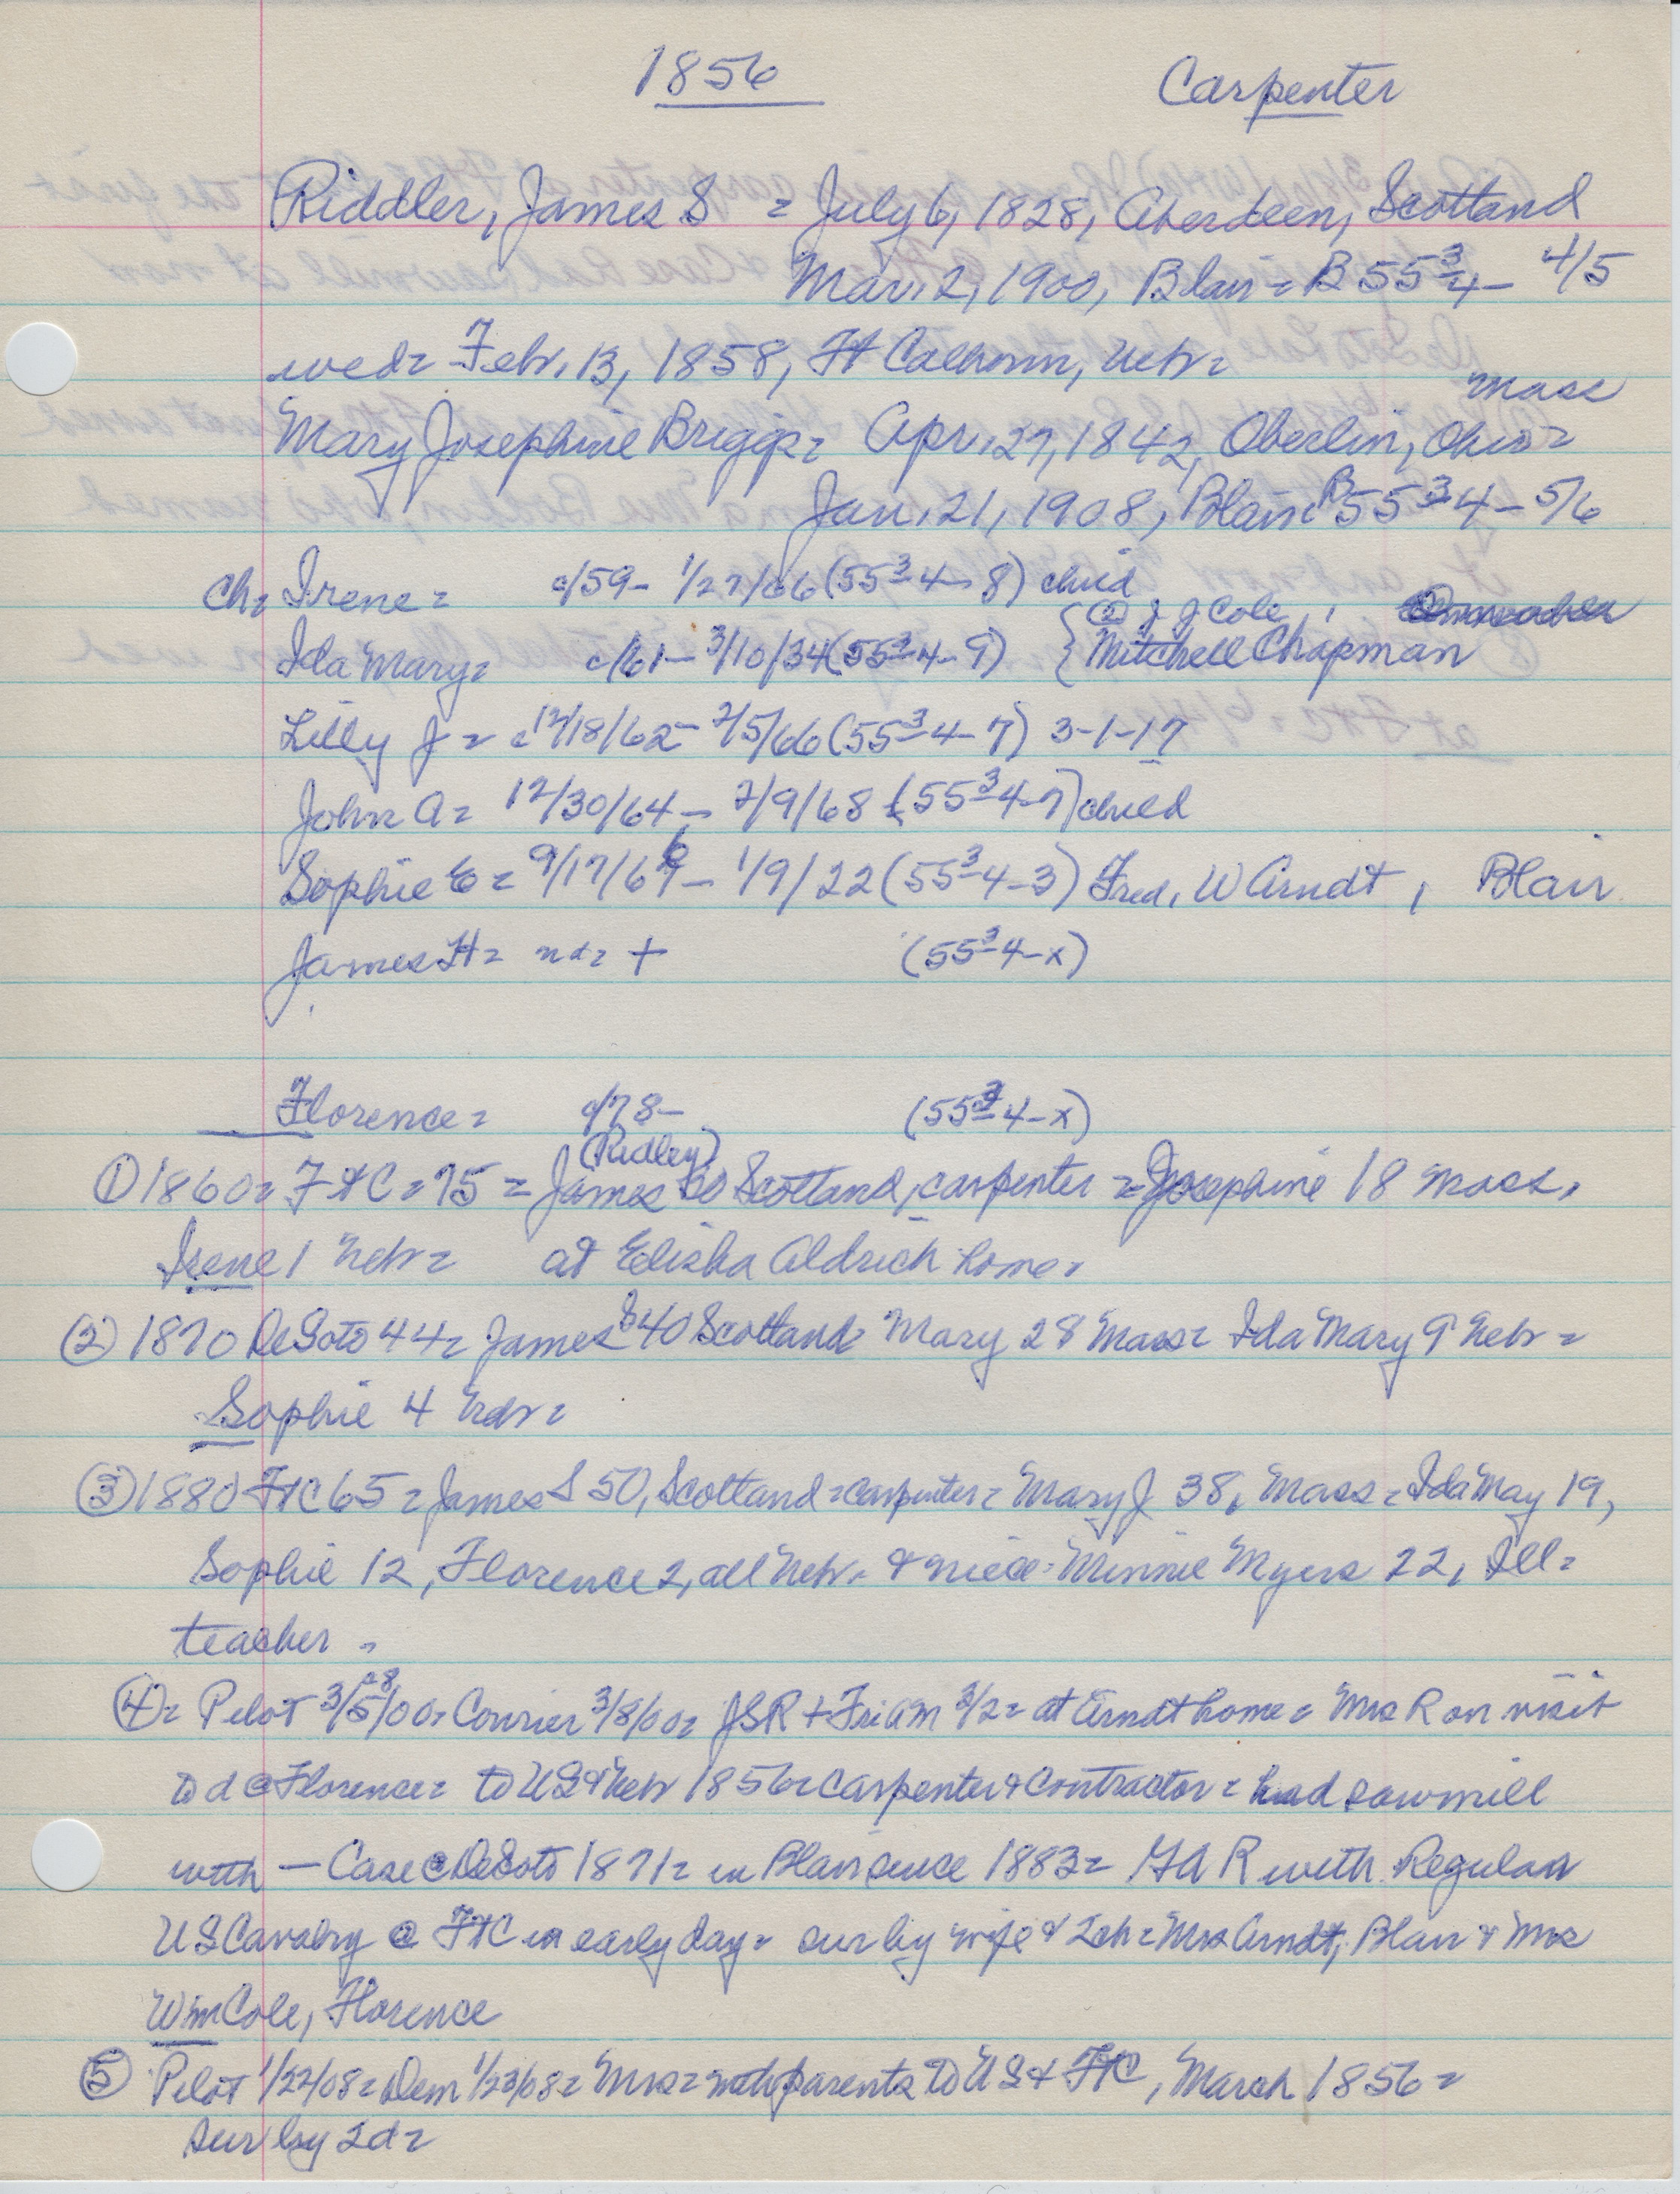 1856 Carpenter
Riddler, James S = July 6, 1828, Aberdeen, Scotland
Mar. 2, 1900, Blair = B 55 3/4 - 4/5
wed = Feb. 13, 1858, Ft Calhoun, Nebr =
Mass
Mary Josephine Briggs = Apr. 27, 1842, Oberlin, Ohio =
Jan. 21, 1908, Blair = B 55 3/4 - 5/6
Ch = Irene = c/59 - 1/27/66 (55 3/4 - 8) child
② J J Cole,
Ida Mary = c/61 - 3/10/34 (55 3/4 - 9) { Mitchell Chapman
Lilly J = c 12/18/62 - 2/5/66 (55 3/4 - 7) 3-1-17
John A = 12/30/64 - 2/9/68 (55 3/4 - 7) child
Sophie E = 9/17/66 - 1/9/22 (55 3/4 - 3) Fred. W Arndt, Blair
James H = nd = + (55 3/4 - x)
Florence = c/78 - (55 3/4 - x)
(Ridley)
① 1860 = FtC = 75 = James 30 Scotland, carpenter = Josephine 18 Mass.
Irene 1 Nebr = at Elisha Aldrich home.
② 1870 DeSoto 44 = James S 40 Scotland = Mary 28 Mass = Ida Mary 9 Nebr =
Sophie 4 Nebr =
③ 1880 FtC 65 = James S 50, Scotland = carpenter = Mary J 38, Mass = Ida May 19,
Sophie 12, Florence 2, all Nebr. & niece = Minnie Myers 22, Ill =
teacher =
④ = Pilot 3/8/00 = Courier 3/8/00 = JSR + Fri am 3/2 = at Arndt home = Mrs R on visit
to d @ Florence = to US & Nebr 1856 = Carpenter & Contractor = had sawmill
with — Case @ DeSoto 1871 = in Blair since 1883 = GAR with Regular
US Cavalry @ FtC in early day = sur by wife & 2 ch = Mrs Arndt, Blair & Mrs
Wm Cole, Florence
⑤ Pilot 1/22/08 = Dem 1/23/08 = Mrs = with parents to US & FtC, March 1856 =
sur by 2d =